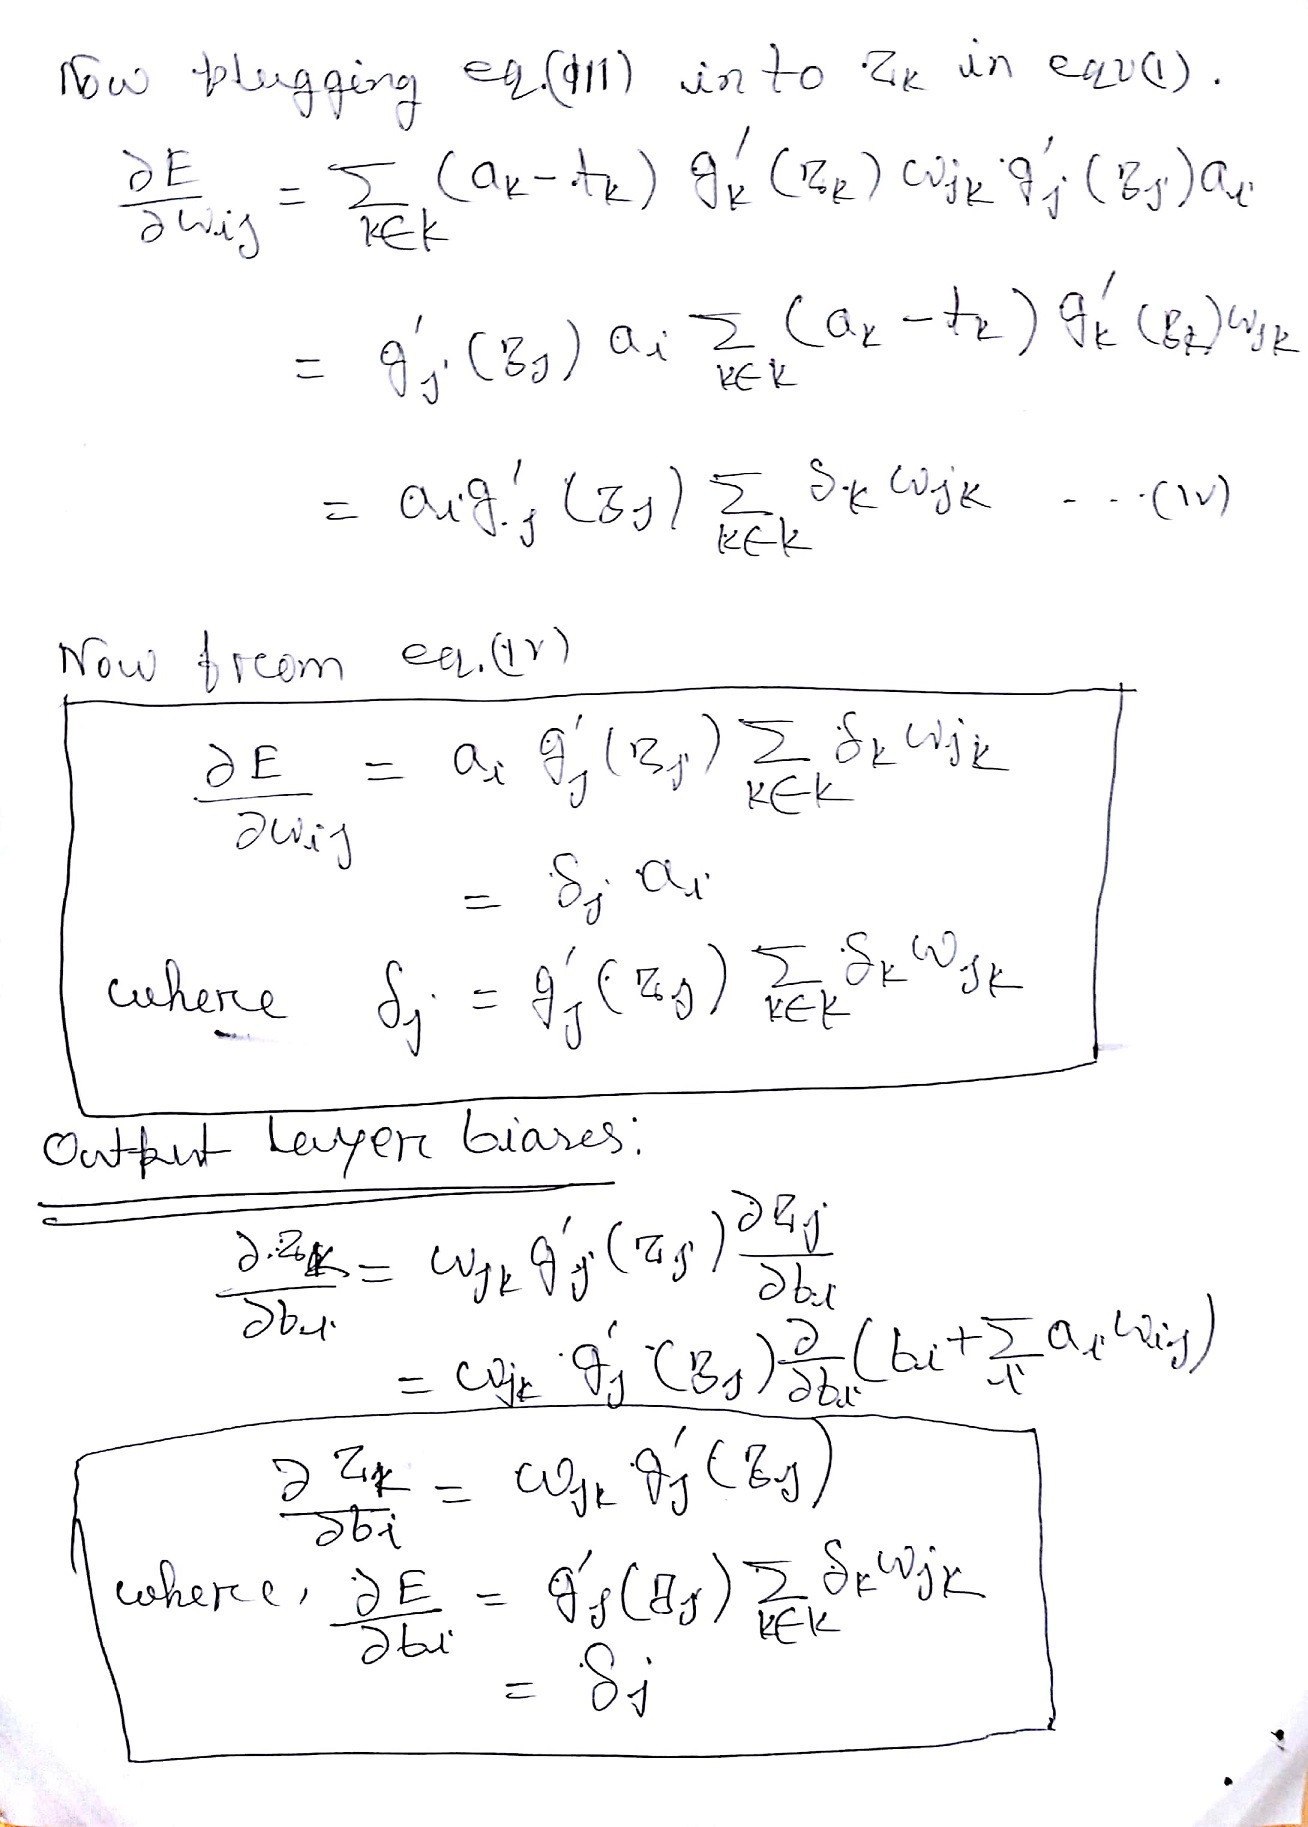 Now plugging eq.(III) into z_k in equ(I).
∂E/∂w_ij = Σ_{k∈K} (a_k - t_k) g'_k (z_k) w_jk g'_j (z_j) a_i
= g'_j (z_j) a_i Σ_{k∈K} (a_k - t_k) g'_k (z_k) w_jk
= a_i g'_j (z_j) Σ_{k∈K} δ_k w_jk ---(IV)
Now from eq.(IV)
∂E/∂w_ij = a_i g'_j (z_j) Σ_{k∈K} δ_k w_jk
= δ_j a_i
where δ_j = g'_j (z_j) Σ_{k∈K} δ_k w_jk
Output Layer biases:
∂z_k/∂b_i = w_jk g'_j (z_j) ∂z_j/∂b_i
= w_jk g'_j (z_j) ∂/∂b_i (b_i + Σ_i a_i w_ij)
∂z_k/∂b_i = w_jk g'_j (z_j)
where, ∂E/∂b_i = g'_j (z_j) Σ_{k∈K} δ_k w_jk
= δ_j